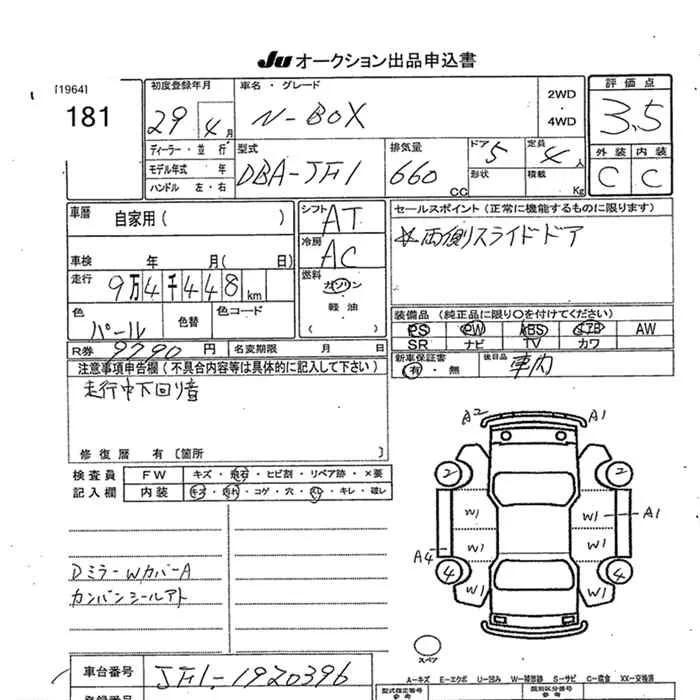 Ju オークション出品申込書
[1964]
181
初度登録年月
29 4月
車名・グレード
N-BOX
2WD
・
4WD
評価点
3.5
ディーラー・並行
モデル年式 年
ハンドル 左・右
型式
DBA-JF1
排気量
660 CC
ドア 5
形状
定員 4人
積載 Kg
外装 内装
C C
車歴 自家用( )
車検 年 月( 日)
走行 9万4千448km
色 パール
色替
色コード
シフト AT
冷房 AC
燃料
ガソリン
・
軽油
( )
セールスポイント(正常に機能するものに限ります)
★両側スライドドア
装備品(純正品に限り○を付けてください)
PS PW ABS エアB AW
SR ナビ TV カワ
R券 9790円 名変期限 月 日
新車保証書
有・無
後日品 車内
注意事項申告欄(不具合内容等は具体的に記入して下さい)
走行中下回り音
修復歴 有〔箇所 〕
検査員
記入欄
FW キズ・飛石・ヒビ割・リペア跡・×要
内装 キズ・汚れ・コゲ・穴・スレ・キレ・破レ
DミラーWカバーA
カンバンシールアト
A2 A1
2 2
W1 W1 A1
A4 W1 W1
4 4
W1 W1
スペア
車台番号 JF1-1920396
A-キズ E-エクボ U-凹み W-補修跡 S-サビ C-腐食 XX-交換済
型式指定番号
参考
類別区分番号
参考
登録番号